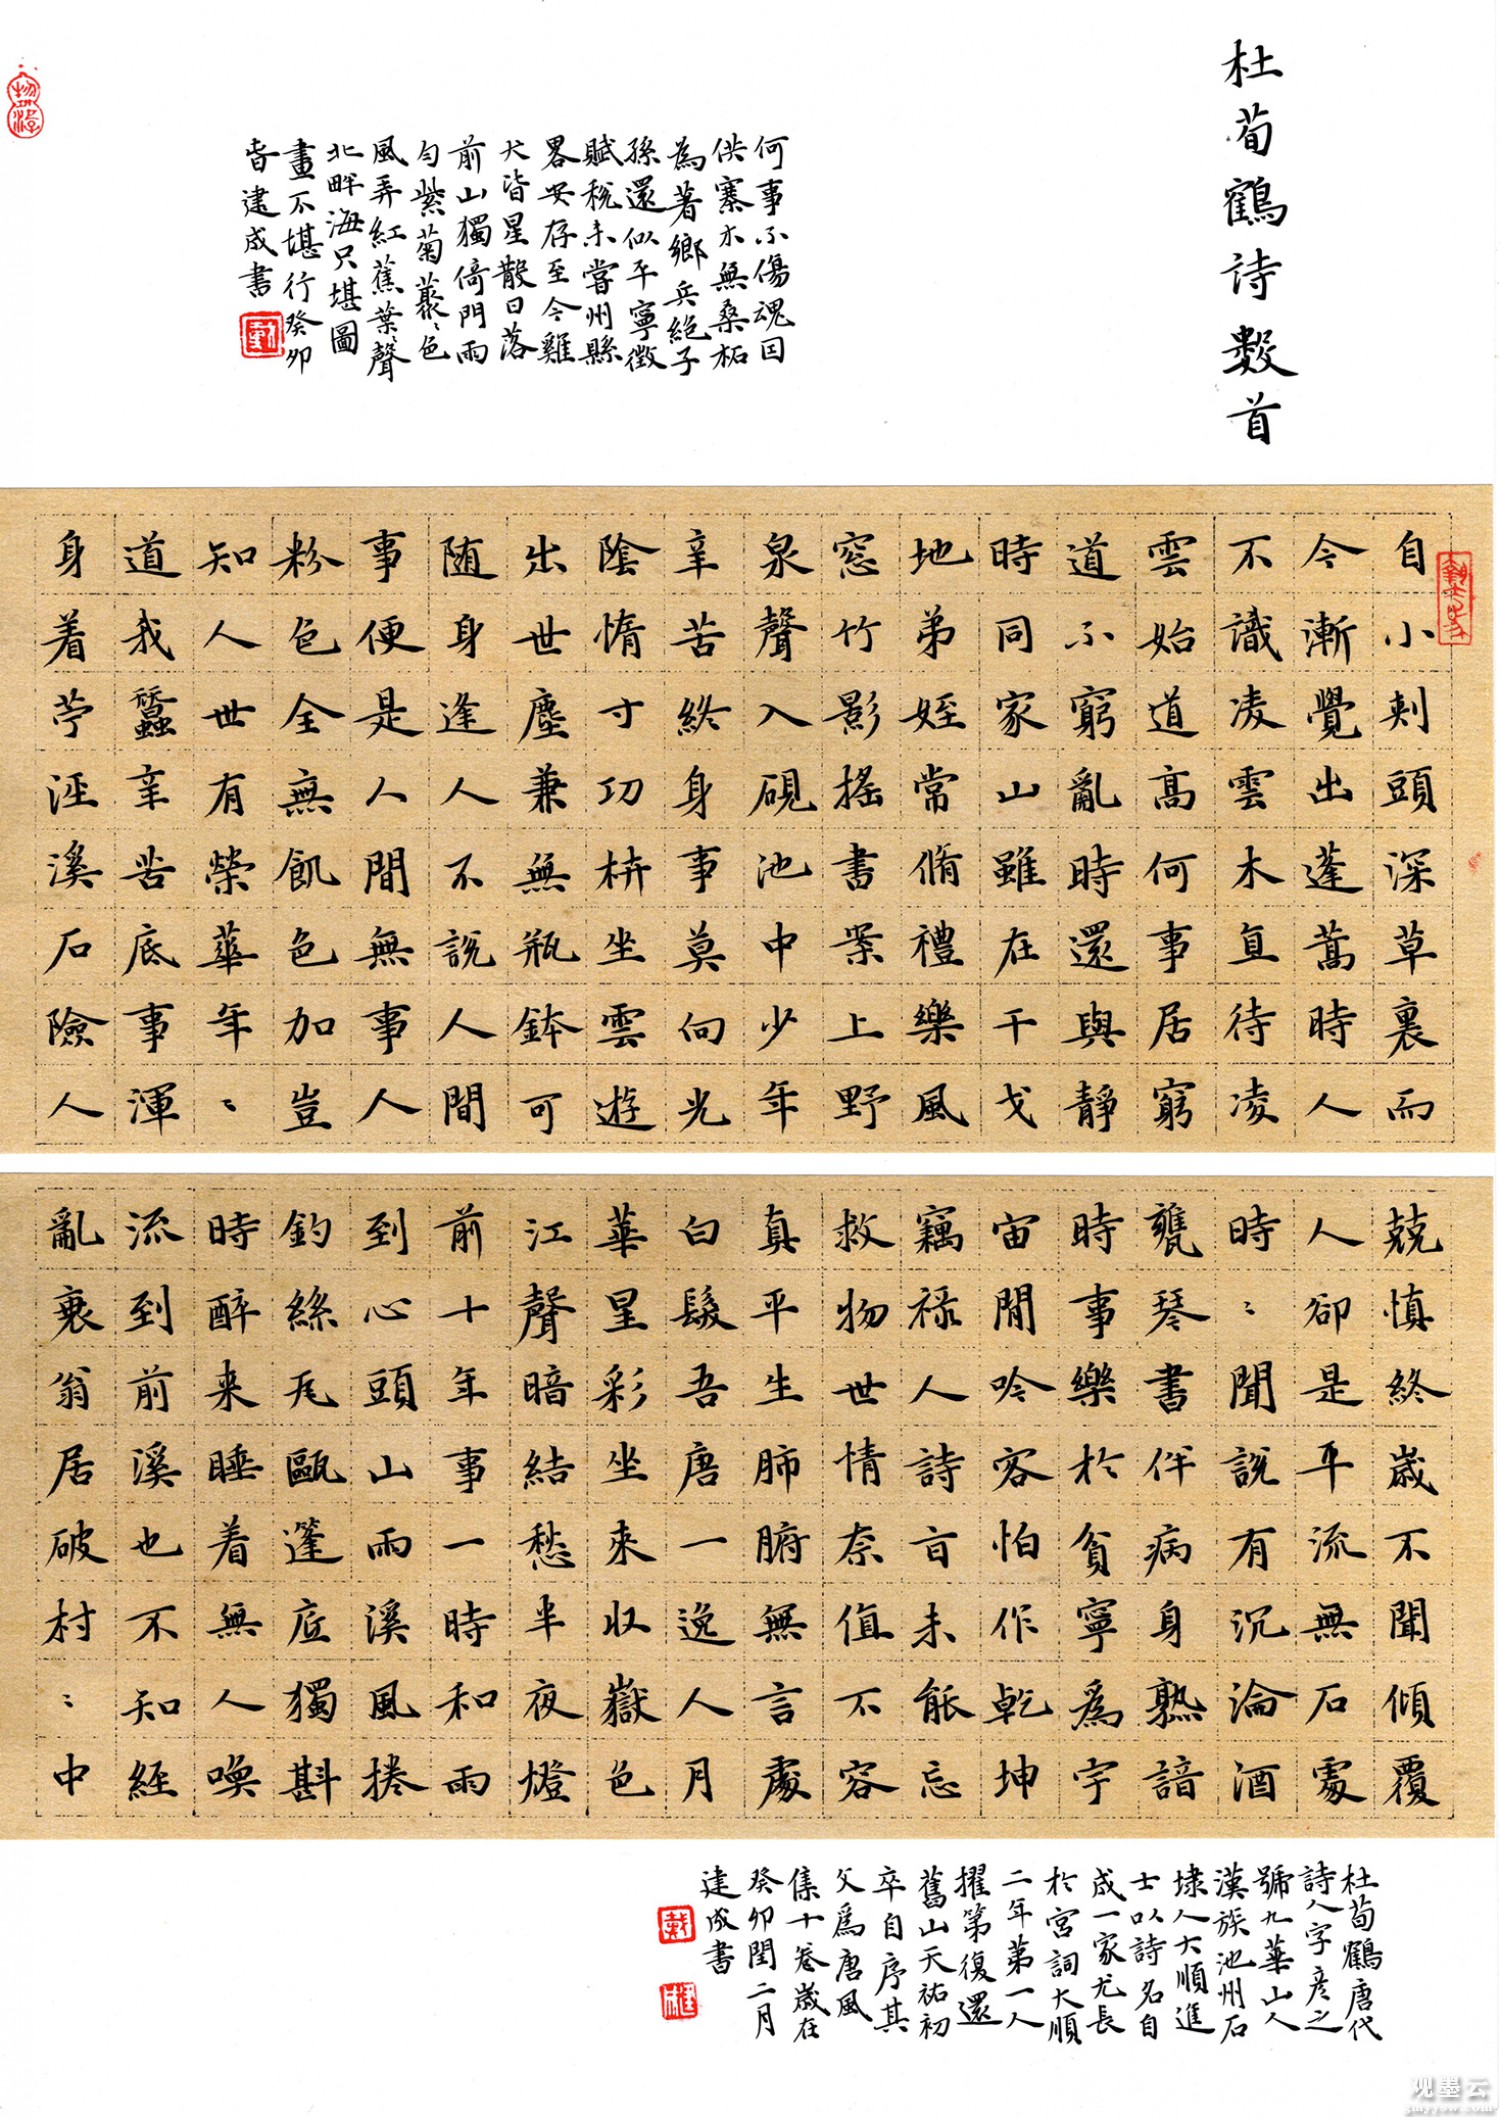 杜荀鶴詩數首
自小刺頭深草裏而
今漸覺出蓬蒿時人
不識凌雲木直待凌
雲始道高何事居窮
道不窮亂時還與靜
時同家山雖在干戈
地弟姪常脩禮樂風
窓竹影搖書案上野
泉聲入硯池中少年
辛苦終身事莫向光
陰惰寸功枿坐雲遊
出世塵兼無瓶鉢可
随身逢人不說人間
事便是人間無事人
粉色全無飢色加豈
知人世有榮華年〻
道我蠶辛苦底事渾
身着苧涇溪石險人
兢慎終歲不聞傾覆
人卻是平流無石處
時〻聞說有沉淪酒
甕琴書伴病身熟諳
時事樂於貧寧為宇
宙閒吟客怕作乾坤
竊祿人詩旨未能忘
救物世情奈值不容
真平生肺腑無言處
白髮吾唐一逸人月
華星彩坐來收嶽色
江聲暗結愁半夜燈
前十年事一時和雨
到心頭山雨溪風捲
釣絲瓦甌篷底獨斟
時醉来睡着無人喚
流到前溪也不知經
亂衰翁居破村〻中
何事不傷魂因
供寨木無桑柘
為著鄉兵絕子
孫還似平寧徵
賦稅未嘗州縣
畧安存至今雞
犬皆星散日落
前山獨倚門雨
勻紫菊叢〻色
風弄紅蕉葉〻聲
北畔海只堪圖
畫不堪行癸卯
春建成書
杜荀鶴唐代
詩人字彥之
號九華山人
漢族池州石
埭人大順進
士以詩名自
成一家尤長
於宮詞大順
二年第一人
擢第復還
舊山天祐初
卒自序其
文為唐風
集十卷歲在
癸卯閏二月
建成書
观墨云